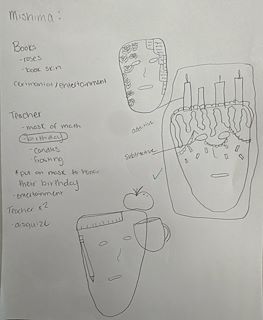 Mishima:
Books
-roses
-book skin
ceremonial/entertainment
Teacher
-mask of math
-birthday
-candles
-frosting
*put on mask to honor
their birthday
-entertainment
Teacher #2
-disguize
additive
Subtractive